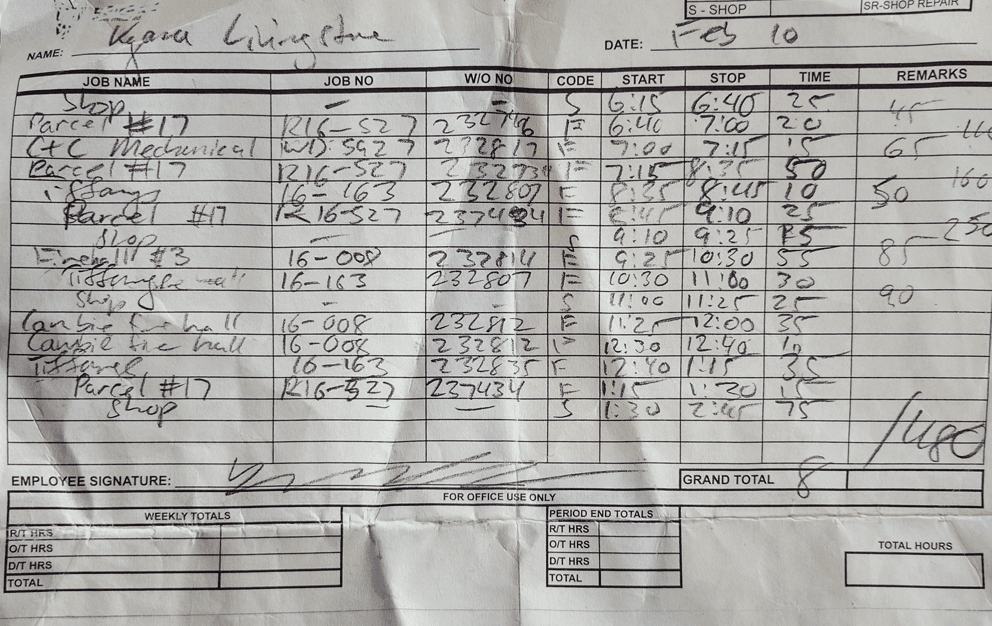 S - SHOP SR-SHOP REPAIR
NAME: Kyana Livingstone DATE: Feb 10
JOB NAME JOB NO W/O NO CODE START STOP TIME REMARKS
Shop — — S 6:15 6:40 25 45
Parcel #17 R16-527 F 6:40 7:00 20
C+C Mechanical 5927 232817 F 7:00 7:15 15 65
Parcel #17 R16-527 F 7:15 8:35 50 160
Tiffanys 16-163 232807 F 8:35 8:45 10 50
Parcel #17 R16-527 F 8:45 9:10 25
Shop — — S 9:10 9:25 15 250
Firehall #3 16-008 232814 F 9:25 10:30 55 85
16-163 232807 F 10:30 11:00 30
Shop - - S 11:00 11:25 25 90
Cambie fire hall 16-008 232812 F 11:25 12:00 35
Cambie fire hall 16-008 232812 F 12:30 12:40 10
16-163 232835 F 12:40 1:15 35
Parcel #17 R16-527 237434 F 1:15 1:30 15
Shop — — S 1:30 2:45 75
/480
EMPLOYEE SIGNATURE: GRAND TOTAL 8
FOR OFFICE USE ONLY
WEEKLY TOTALS PERIOD END TOTALS
R/T HRS R/T HRS
O/T HRS O/T HRS TOTAL HOURS
D/T HRS D/T HRS
TOTAL TOTAL